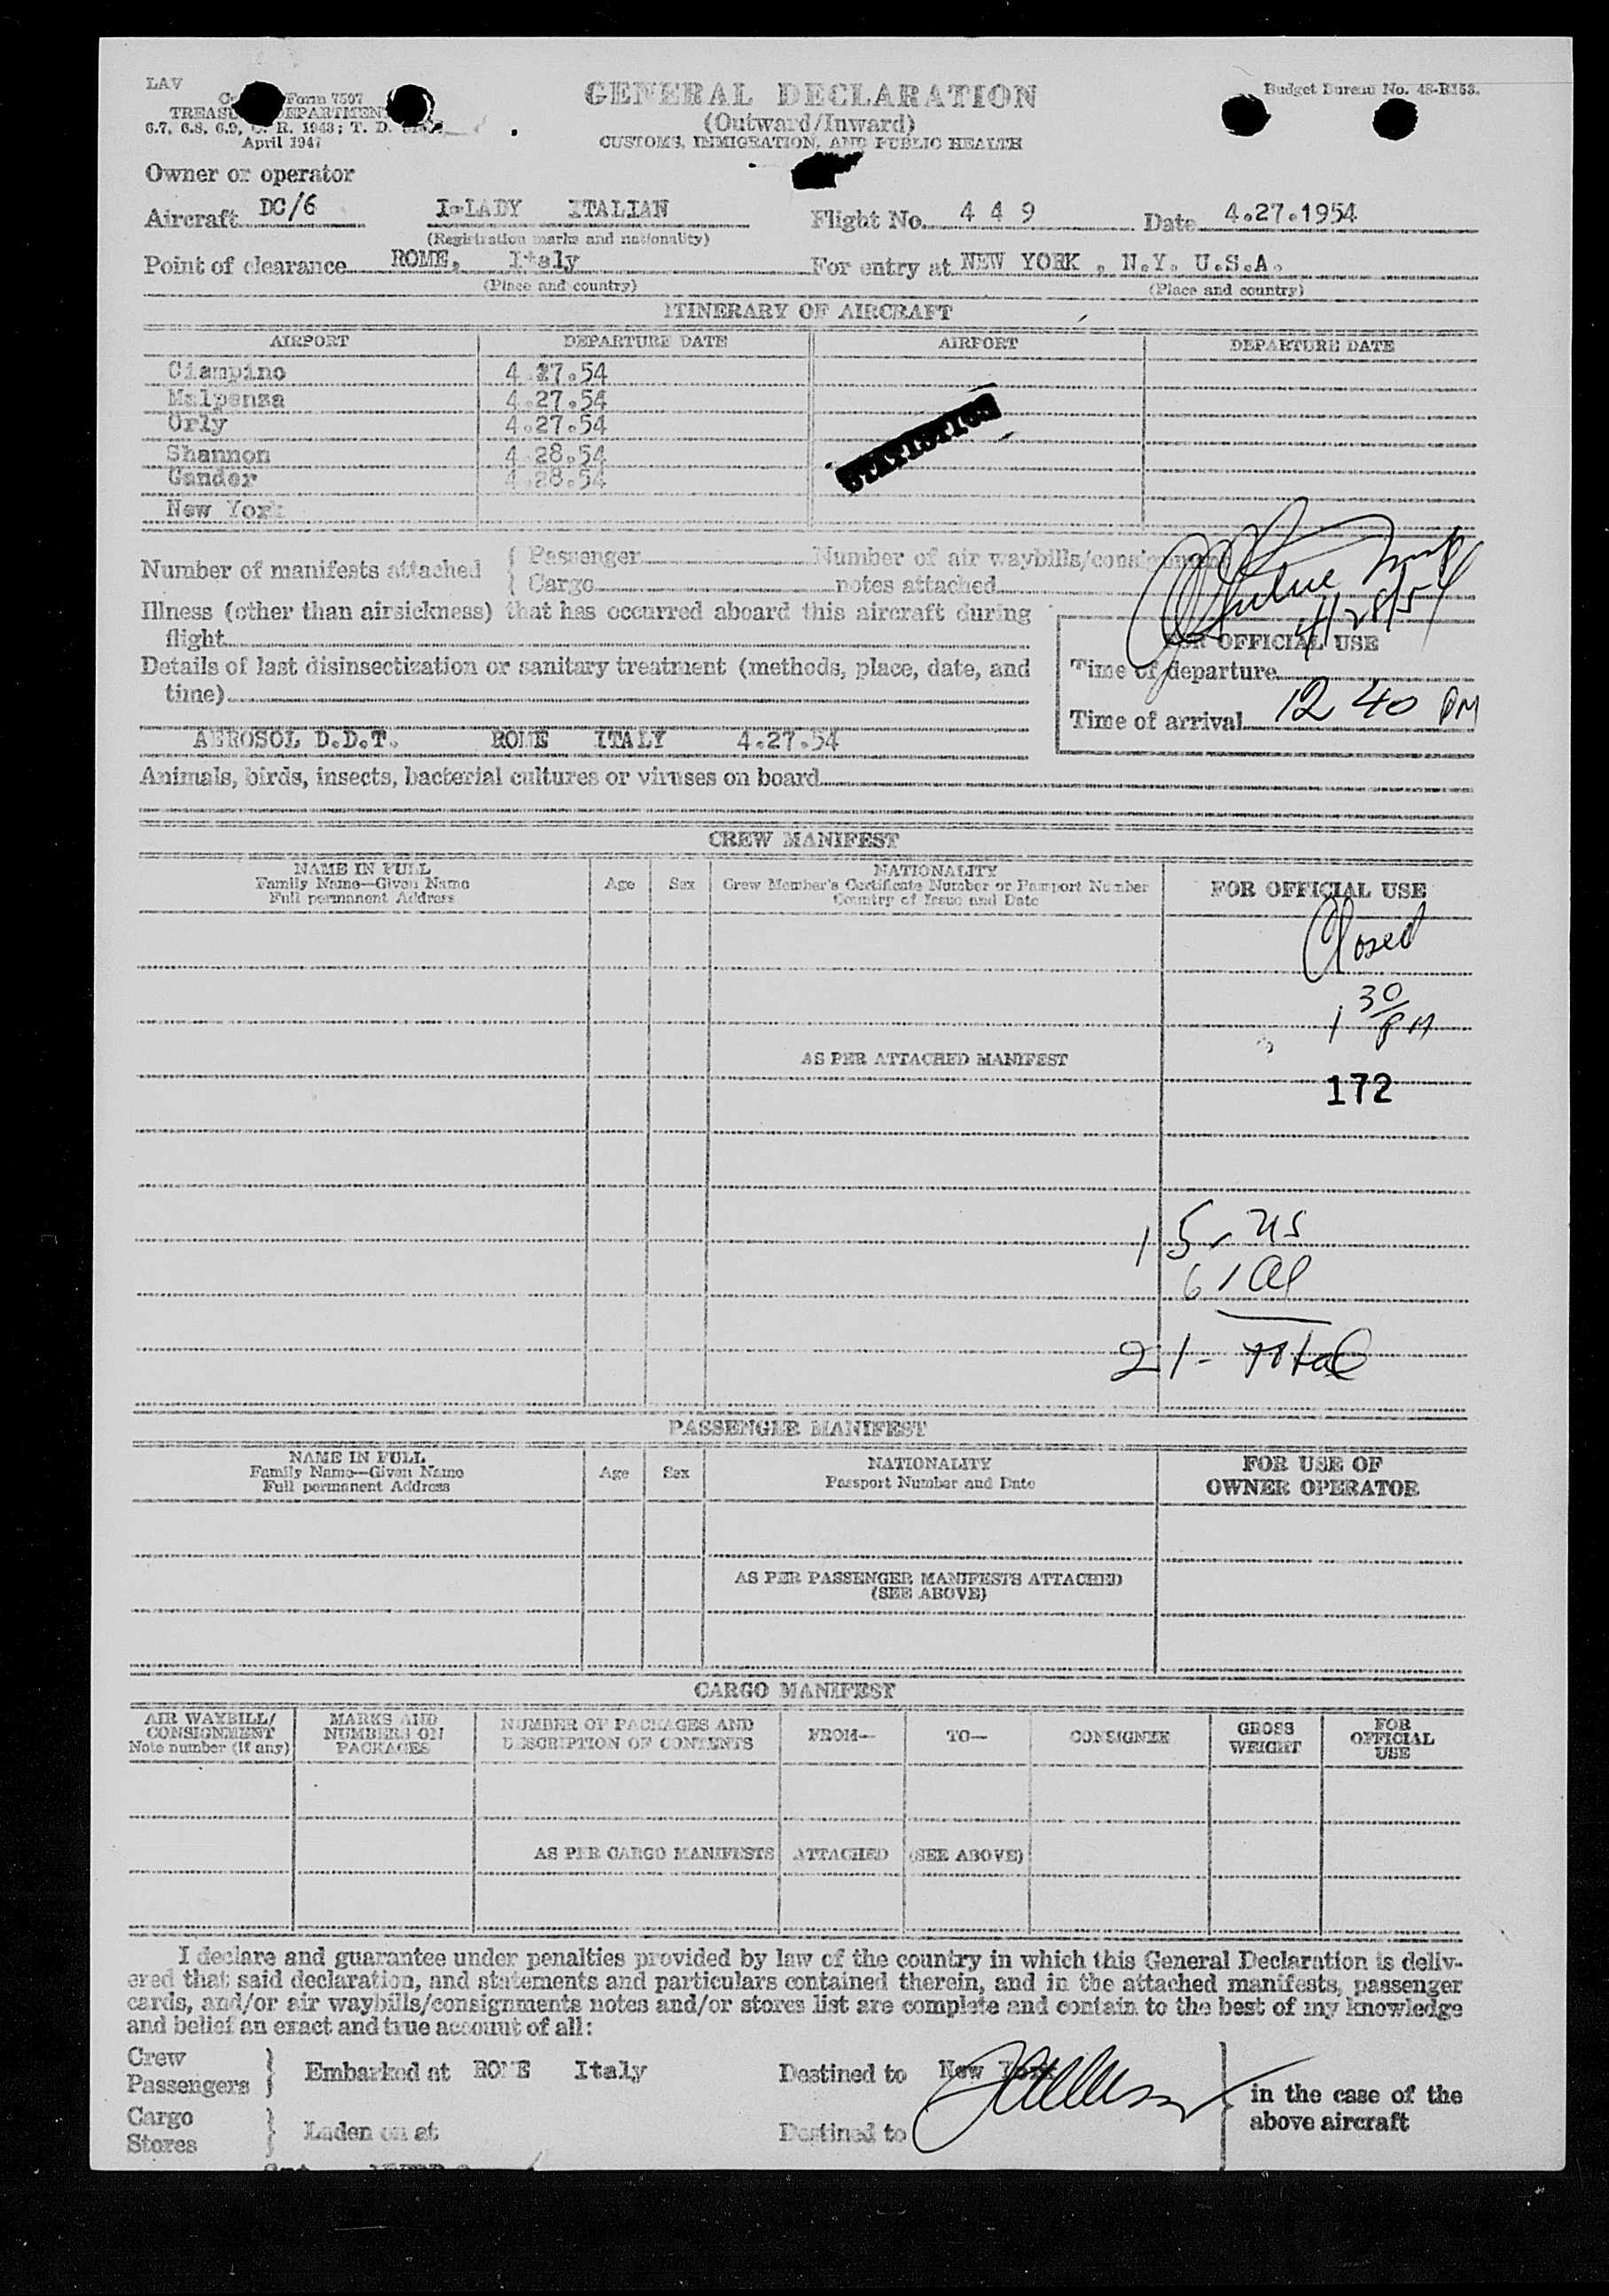 LAV
Form 7507
GENERAL DECLARATION
Budget Bureau No. 48-R153.
TREASU DEPARTMENT
(Outward/Inward)
6.7, 6.8, 6.9, C. R. 1943; T. D.
April 1947
CUSTOMS, IMMIGRATION, AND PUBLIC HEALTH
Owner or operator
Aircraft DC/6 I-LADY ITALIAN Flight No. 4 4 9 Date 4.27.1954
(Registration marks and nationality)
Point of clearance ROME, Italy For entry at NEW YORK , N.Y. U.S.A.
(Place and country) (Place and country)
ITINERARY OF AIRCRAFT
AIRPORT DEPARTURE DATE AIRPORT DEPARTURE DATE
Ciampino 4.27.54
Malpensa 4.27.54
Orly 4.27.54
Shannon 4.28.54
Gander 4.28.54
New York
STATISTICS
Number of manifests attached { Passenger Number of air waybills/consignment
{ Cargo notes attached
4/28/54
Illness (other than airsickness) that has occurred aboard this aircraft during
flight
FOR OFFICIAL USE
Details of last disinsectization or sanitary treatment (methods, place, date, and
time)
Time of departure
Time of arrival 12 40 PM
AEROSOL D.D.T. ROME ITALY 4.27.54
Animals, birds, insects, bacterial cultures or viruses on board
CREW MANIFEST
NAME IN FULL
Family Name—Given Name
Full permanent Address
Age Sex
NATIONALITY
Crew Member's Certificate Number or Passport Number
Country of Issue and Date
FOR OFFICIAL USE
Closed
1 30 PM
AS PER ATTACHED MANIFEST
172
15 - US
6 / al
21 - total
PASSENGER MANIFEST
NAME IN FULL
Family Name—Given Name
Full permanent Address
Age Sex
NATIONALITY
Passport Number and Date
FOR USE OF
OWNER OPERATOR
AS PER PASSENGER MANIFESTS ATTACHED
(SEE ABOVE)
CARGO MANIFEST
AIR WAYBILL/
CONSIGNMENT
Note number (if any)
MARKS AND
NUMBERS ON
PACKAGES
NUMBER OF PACKAGES AND
DESCRIPTION OF CONTENTS
FROM— TO— CONSIGNEE
GROSS
WEIGHT
FOR
OFFICIAL
USE
AS PER CARGO MANIFESTS ATTACHED (SEE ABOVE)
I declare and guarantee under penalties provided by law of the country in which this General Declaration is deliv-
ered that said declaration, and statements and particulars contained therein, and in the attached manifests, passenger
cards, and/or air waybills/consignments notes and/or stores list are complete and contain to the best of my knowledge
and belief an exact and true account of all:
Crew
Passengers } Embarked at ROME Italy Destined to New York
in the case of the
above aircraft
Cargo
Stores } Laden on at Destined to